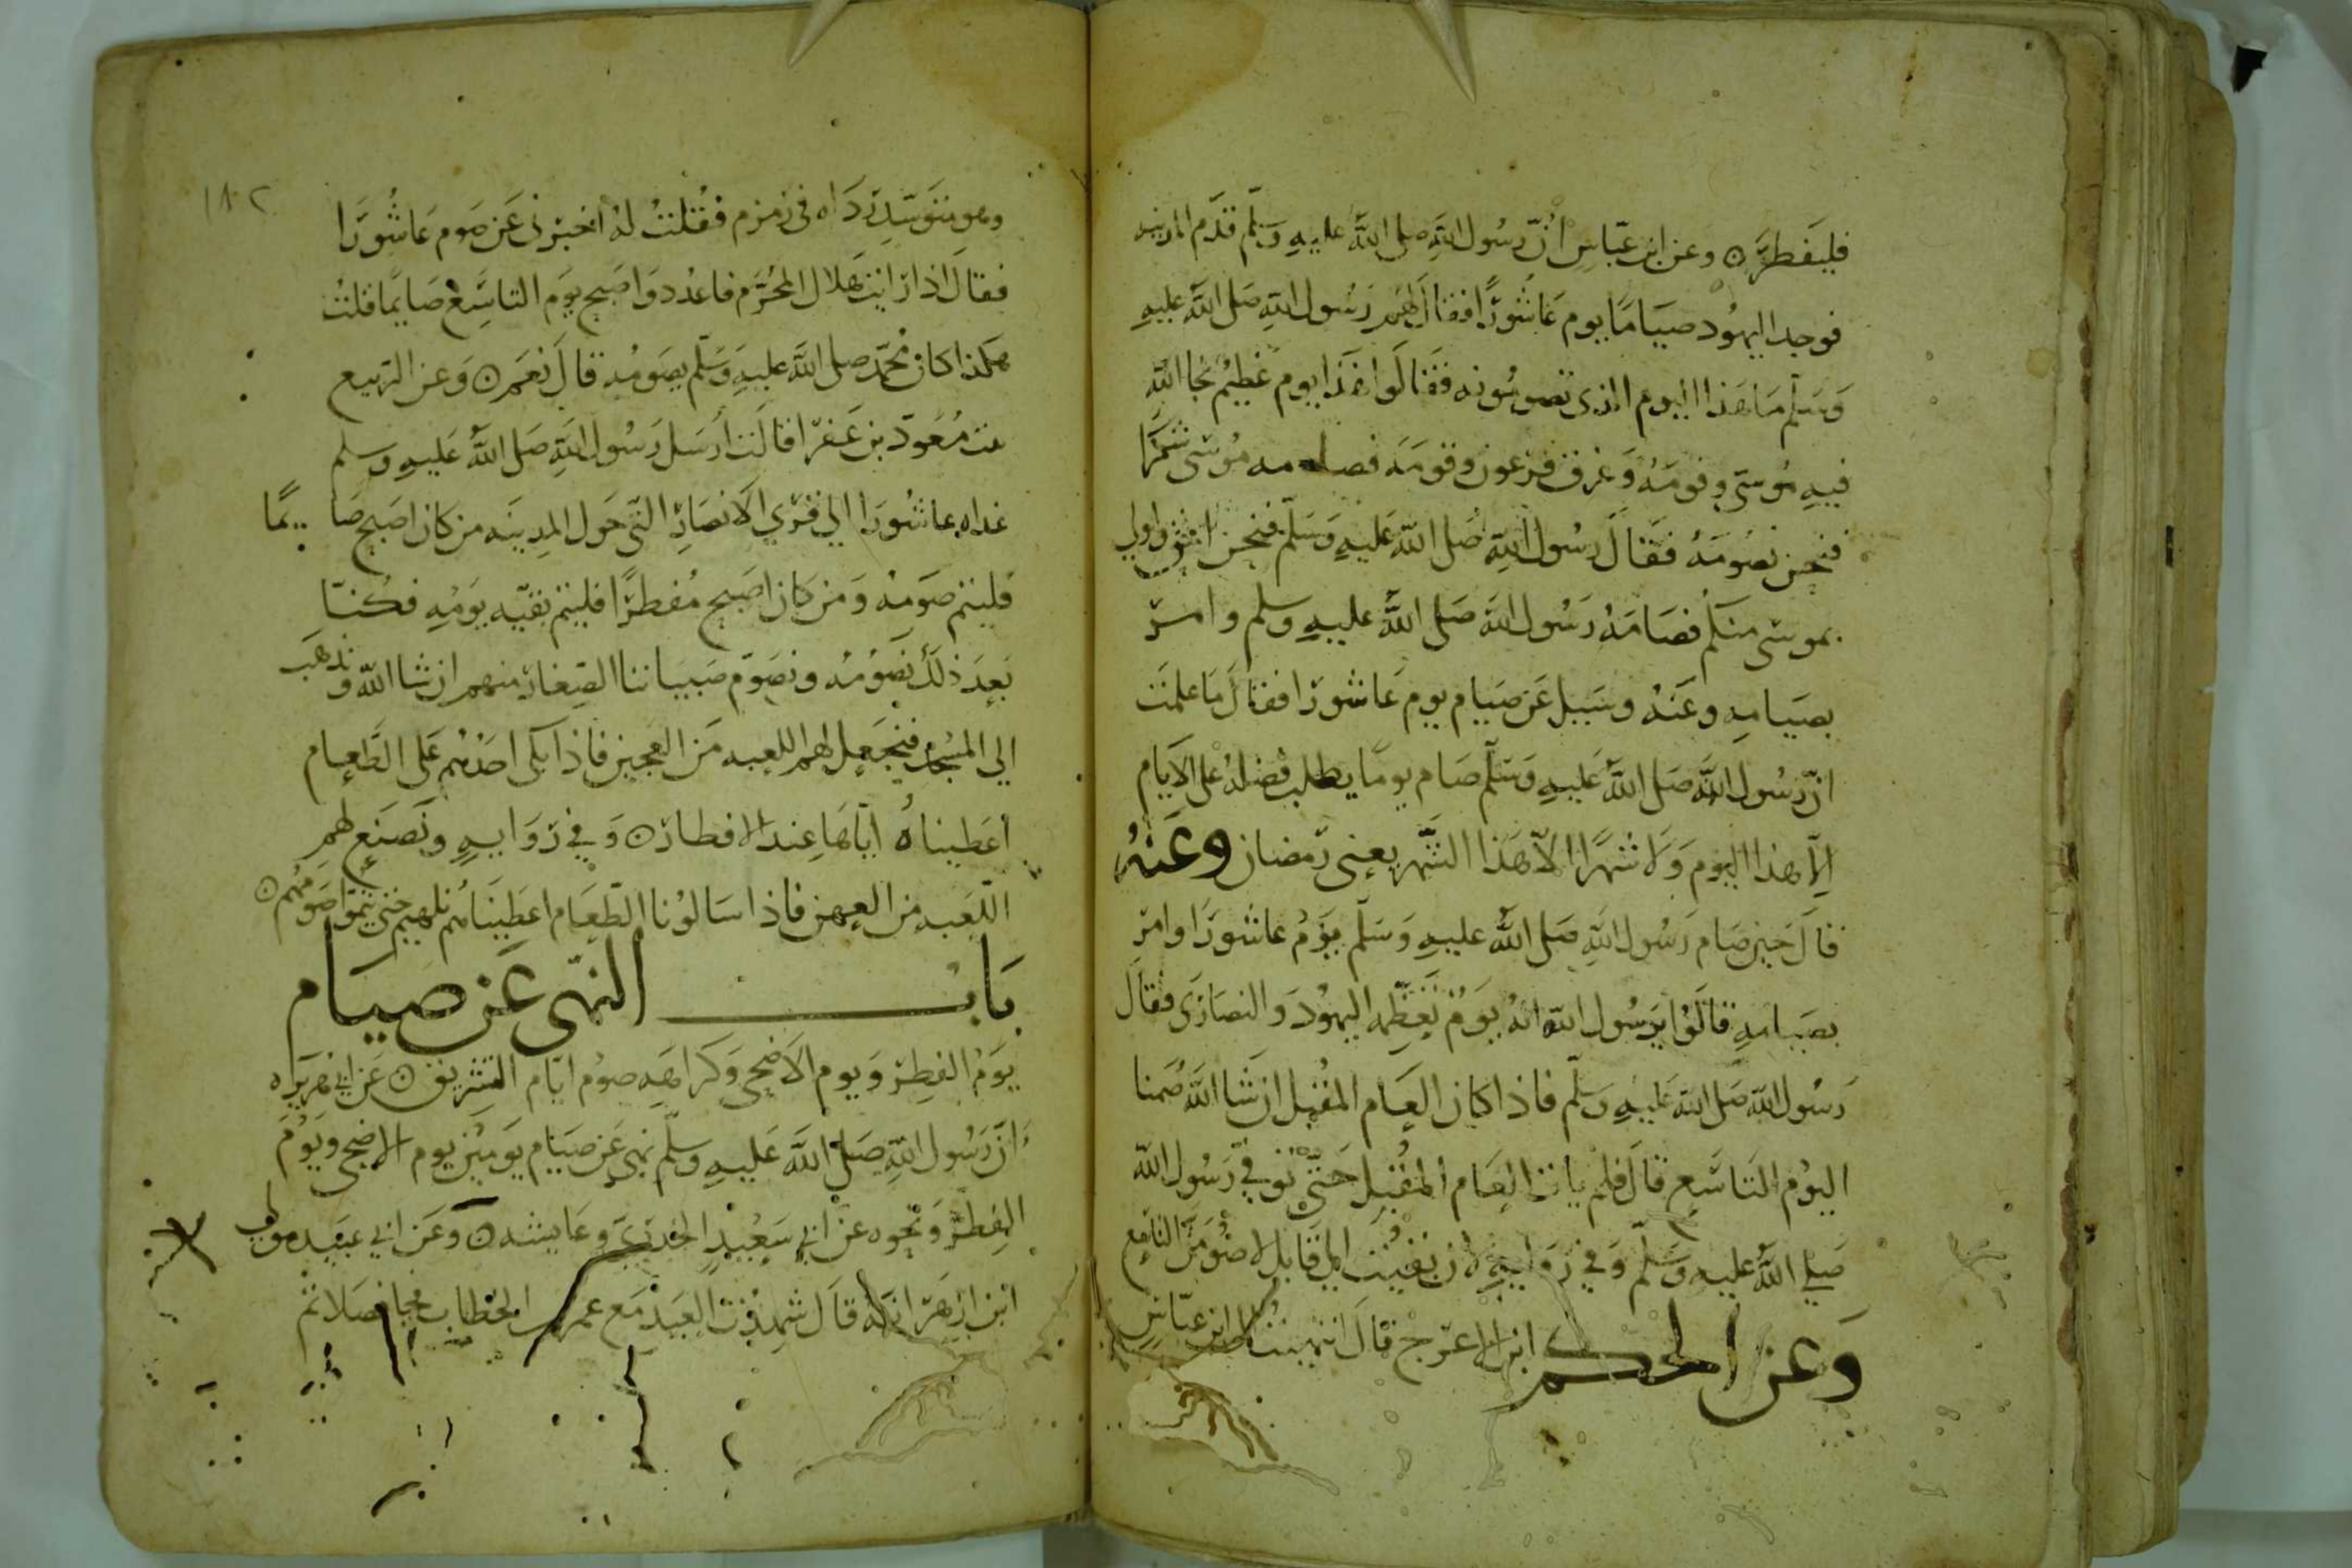 فليفطره وعن ابن عبّاسٍ أنّ رسُول اللّهِ صلى اللّه عليهِ وسَلّم قدَم المدينه
فوجد اليهُود صيَامًا يوم عَاشُورًا فقاَل لهَم رَسُول اللّهِ صَلى اللّه عليهِ
وَسَلّم مَا هَذا اليوم الذى تصومُونه فقَالوا هَذا يوم عَظيمُ نجا اللّه
فيهِ مُوسَى وقومَهُ وَغرق فرعون وقومَه فصامه مُوسَى شكرًا
فنحن نصُومَهُ فقَال رسُول اللّهِ صَلى اللّه عَليهِ وَسَلّم فنحن احَق واولي
بموسَى منكم فصَامَهُ رَسُول اللّه صَلى اللّه عليهِ وسلم وامرَ
بصيَامِهِ وعَنهُ وسَيل عَن صيَام يوم عَاشورَا فقال مَا علمتَ
انّ رسُول اللّه صَلى اللّه عَليهِ وَسَلّم صَام يومًا يطلب فضلهُ على الاَيام
الِاّ هذا اليوم وَلا شهرًا الاّ هَذا الشَّهر يعني رَمضان وعَنهُ
قالَ حَين صَام رَسُول اللّهِ صَلى اللّه عليهِ وَسَلّم يَومُ عاشورَا وامرَ
بصَيامهِ قالَوُا يَرسُول اللّه انهُ يَومُ تعَظِّمه اليهُود وَالنصَارَى فقال
رَسُول اللّه صَلى اللّه عَليهِ وسَلّم فاذا كان العَام المُقبل ان شَا اللّه صُمنا
اليوُم التَاسَعِ قالَ فلم يات العَام المقُبِل حَتّى توفيّ رَسُول اللّه
صَلي اللّه عليهِ وَسَلّم وَفي رَوايهِ لان بقيُت الى قَابل لاصوُمَنّ التاسع
وَعن الحكم ابن الاعرَج قالَ انتهيتُ الى ابن عبّاسٍ
١٨٢
وهو متوَسّدِ رَدَاه في زمزم فقُلتُ لهُ اخبرنى عَن صَوم عَاشُورَا
فقالَ اذا رَايت هَلال المحُرَّم فاعدُد وَاصَبح يَوم التاسَعِ صَايمًا قلتُ
هكذا كان محمَّد صلى اللّه عليهِ وسَلّم يصَومُه قالَ نعَم ه وَعن الرّبيع
بنت مُعَوذ بن عَفرا قالَت أرسَل رَسُول اللّهِ صَلى اللّه عَليهِ وسلم
غداه عاشُورَا الي قرَي الاَنصَارِ التَى حَول المدِينَه من كان اصَبح صَا يمًا
فليتم صَومهُ وَمَن كان اصَبح مُفطرًا فليتم بقيّه يَومهِ فكُنّا
بَعدَ ذلكَ نصَومُه ونصَوّم صَبيَاننا الصّغار منهم ان شا اللّه ونذهَب
الي المسُجد فنجَعل لهم اللعبه مَن العهين فاذا بكى احَدهُم عَلى الطّعَام
أعَطيناهُ ايّاهَا عند الافطار ه وَفي رَوايهِ ونَصَنع لهمِ
اللّعَبه من العِهن فاذا سَالوُنا الطّعَام اعَطينَاهُم تلهيهم حَتى يتمّوا صَومهُم ه
بَابُ النهّى عَن صيَام
يَوم الفِطر وَيوم الاَضحى وَكرَاهَه صومُ ايّام التشريق ه عَن ابي هرَيره
أنَّ رَسُول اللّهِ صَلىّ اللّه عَليهِ وسلّم نهى عَن صَيام يَومَيُن يوم الاضحى ويَومُ
الفِطرّ وَنحَوه عَن ابي سَعيُدٍ الخدرَي وعَايشه ه وعَن ابي عبَيد مَولي
ابن ازهَر انّه قالَ شهِدُت العَيدُ مَع عمر بن الخطاب فجا فصَلا ثم